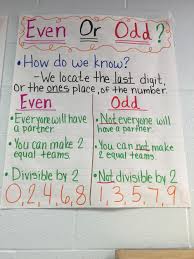 Even Or Odd?
• How do we know?
- We locate the last digit,
or the ones place, of the number.
Even
• Everyone will have
a partner.
• You can make 2
equal teams.
• Divisible by 2
0, 2, 4, 6, 8
Odd
• Not everyone will
have a partner.
• You can not make
2 equal teams.
• Not divisible by 2
1, 3, 5, 7, 9